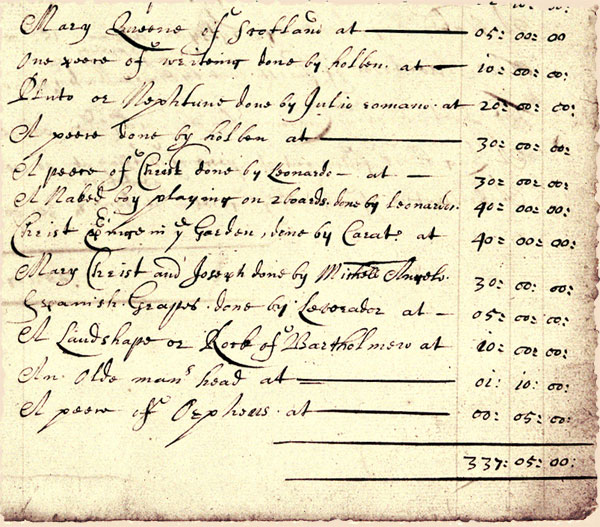 Mary Queene of Scotland at 05: 00: 00
One peece of writeing done by holben at 10: 00: 00:
Pluto or Nephtune done by Julio romano at 20: 00: 00:
A peece done by holben at 30: 00: 00:
A peece of Christ done by Leonardo at 30: 00: 00:
A Naked boy playing on 2 boards done by leonardo: 40: 00: 00:
Christ in ye Garden, done by Carat: at 40: 00: 00:
Mary Christ and Joseph done by Michell Angelo: 30: 00: 00:
Spanish Grapes done by at 05: 00: 00:
A Landshape or Rock of Bartholmew at 10: 00: 00:
An Olde mans head at 01: 10: 00:
A peece of Orpheus at 00: 05: 00:
337: 05: 00: